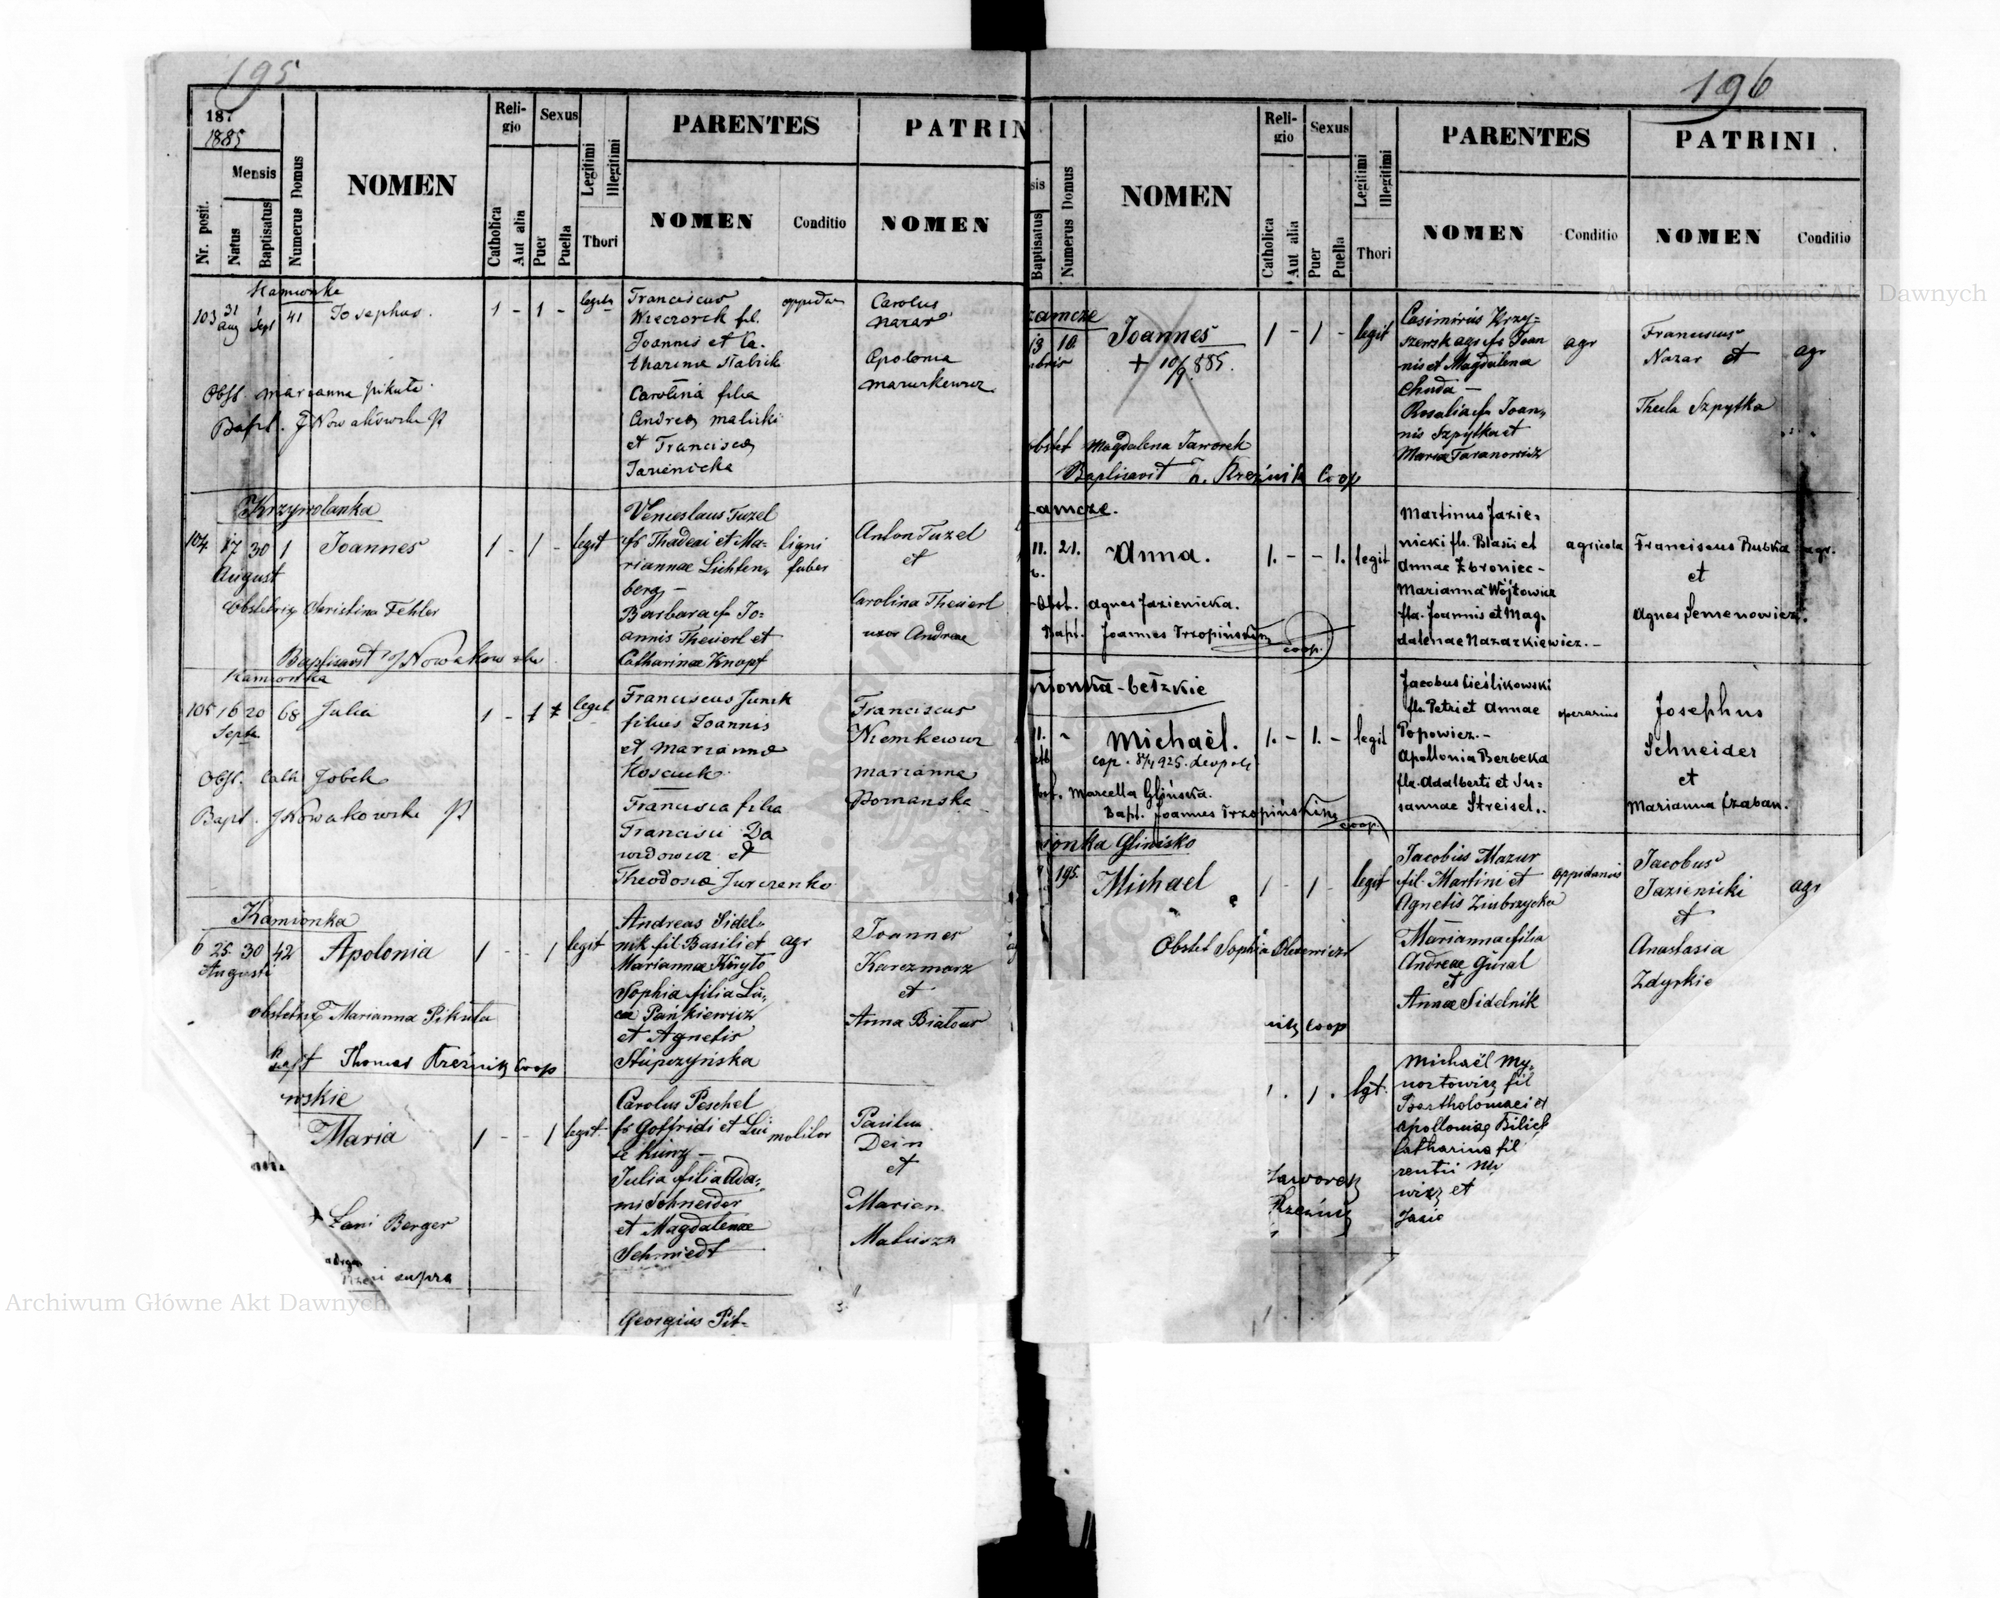 195
187
1885
Nr. posit.
Mensis
Natus
Baptisatus
Numerus Domus
NOMEN
Religio
Catholica
Aut alia
Sexus
Puer
Puella
Legitimi
Illegitimi
Thori
PARENTES
NOMEN
Conditio
PATRIN
NOMEN
Kamionka
103 31 1 41 Josephus. 1 - 1 -
Aug Sept
Franciscus
Wieczorek fil.
Joannis et Ca-
tharina
Carolina filia
Andreas
et Francisca
Carolus
Nazar
Apolonia
Obst Marianna Pikuta
Bapt. J Nowakowski
Krzywolanka
104 17 30 1 Joannes 1 - 1 - legit
August
Venceslaus Tuzel
fs Thadeai et Ma-
riannae Lichten-
berg -
Barbara f. Jo-
annis Theierl et
Catharinae Knopf
ligni
faber
Anton Tuzel
et
Carolina Theierl
uxor Andreae
Obstetrix Christina Fehler
Baptisavit J Nowakowski
Kamionka
105 16 20 68 Julia 1 - legit
Sept
Franciscus Jurek
filius Joannis
et Marianna
Francisca filia
Francisci Da
widowicz et
Theodosia Jurczenko
Franciscus
Niemkewicz
Marianna
Pornanska
Obst. Cath Jobek
Bapt. J Nowakowski
Kamionka
6 25 30 42 Apolonia 1 - - 1 legit
Augusti
Andreas Sidel-
nik fil Basili et
Marianna Kuryło
Sophia filia Lu-
cae Pańkiewicz
et Agnetis
Stupczyńska
agr
Joannes
Karczmarz
et
Anna Białous
obstetrix Marianna Pikuta
Bapt Thomas Krzeźnik Coop
wskie
Maria 1 - - 1 legit
Carolus Peschel
fs Goffridi et Lui
se Kunz -
Julia filia Ada-
mi Schneider
et Magdalenae
Schmiedt
molitor
Paulus
Dein
et
Marian
Matusza
Berger
supra
Georgius Pit-
196
sis
Baptisatus
Numerus Domus
NOMEN
Religio
Catholica
Aut alia
Sexus
Puer
Puella
Legitimi
Illegitimi
Thori
PARENTES
NOMEN
Conditio
PATRINI.
NOMEN
Conditio
zamcze
13 10. Joannes 1 - 1 - legit
+ 10/9 885.
Casimirus Krzy-
szewski agr fs Joan
nis et Magdalena
Chuda -
Rosalia f. Joan-
nis Szpytka et
Maria Taranowicz
agr
Franciscus
Nazar et
Thecla Szpytka
agr
obstet Magdalena Jaworek
Baptisavit T. Krzeźnik Coop
amcze.
11. 21. Anna. 1. - - 1. legit
Martinus Jazie-
nicki fls. Blasii et
Annae Zbroniec -
Marianna Wójtowicz
fla. Joannis et Mag-
dalenae Nazarkiewicz. -
agricola
Franciscus Rubka agr.
et
Agnes Semenowicz.
Obst. Agnes Jazienicka.
Bapt. Joannes Trzopiński
coop.
mionka - bełzkie
11. Michaël. 1. - 1. - legit
cop. 8/1 925. Leopoli
Jacobus Cieślikowski
fls. Petri et Annae
Popowicz. -
Apollonia Berbeka
fla. Adalberti et Su-
sannae Streisel.
operarius
Josephus
Schneider
et
Marianna Czaban.
Obst. Marcella Glińska.
Bapt. Joannes Trzopiński
coop.
ionka Glinisko
195. Michael 1 - 1 - legit
Jacobus Mazur
fil. Martini et
Agnetis Zimbrzycka
Marianna filia
Andreae Gural
et
Annae Sidelnik
oppidanus
Jacobus
Jazienicki
et
Anastasia
Zdyrkie
agr
Obstet Sophia
Coop
1. 1. lgt.
Michaël My-
nortowicz fil
Bartholomaei et
Apolloniae Bilick
Catharina fil
rentii My
wicz et
Jasie
Jaworek
Krzeźnik
Archiwum Główne Akt Dawnych
Archiwum Główne Akt Dawnych